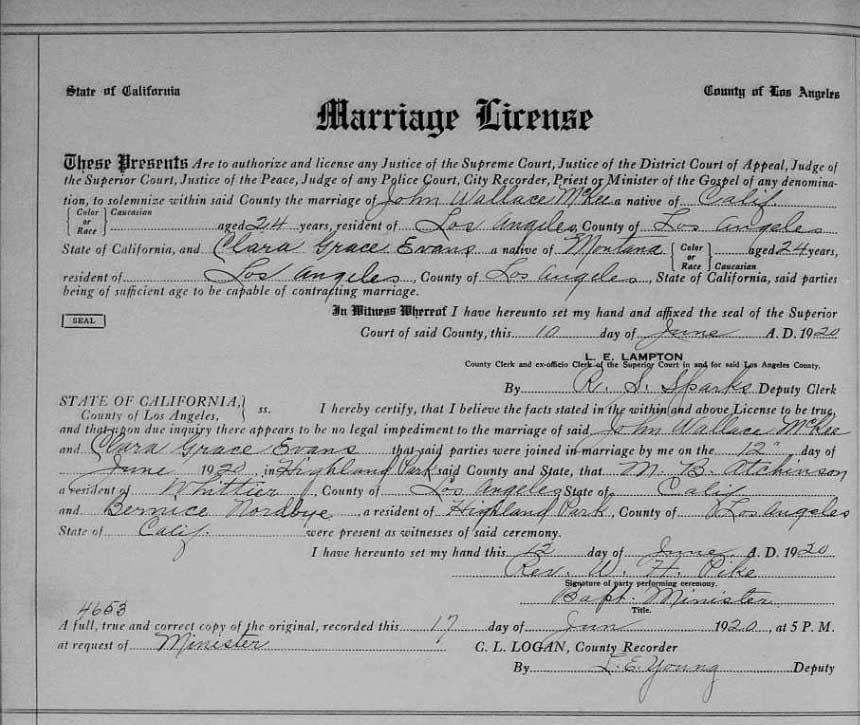 State of California County of Los Angeles
Marriage License
These Presents Are to authorize and license any Justice of the Supreme Court, Justice of the District Court of Appeal, Judge of
the Superior Court, Justice of the Peace, Judge of any Police Court, City Recorder, Priest or Minister of the Gospel of any denomina-
tion, to solemnize within said County the marriage of John Wallace McKee a native of Calif
Color or Race Caucasian aged 24 years, resident of Los Angeles, County of Los Angeles
State of California, and Clara Grace Evans a native of Montana Color or Race Caucasian aged 24 years,
resident of Los Angeles, County of Los Angeles, State of California, said parties
being of sufficient age to be capable of contracting marriage.
In Witness Whereof I have hereunto set my hand and affixed the seal of the Superior
SEAL
Court of said County, this 10 day of June A. D. 1920
L. E. LAMPTON
County Clerk and ex-officio Clerk of the Superior Court in and for said Los Angeles County.
By R. S. Sparks Deputy Clerk
STATE OF CALIFORNIA,
County of Los Angeles, ss. I hereby certify, that I believe the facts stated in the within and above License to be true,
and that upon due inquiry there appears to be no legal impediment to the marriage of said John Wallace McKee
and Clara Grace Evans that said parties were joined in marriage by me on the 12" day of
June 1920, in Highland Park said County and State, that M. B. Atchinson
a resident of Whittier, County of Los Angeles State of Calif
and Bernice Nordbye, a resident of Highland Park, County of Los Angeles
State of Calif. were present as witnesses of said ceremony.
I have hereunto set my hand this 12 day of June, A. D. 1920
Rev. W. H. Pike
Signature of party performing ceremony.
Bapt. Minister
Title.
4653
A full, true and correct copy of the original, recorded this 17 day of Jun 1920, at 5 P. M.
at request of Minister C. L. LOGAN, County Recorder
By L. E. Young Deputy